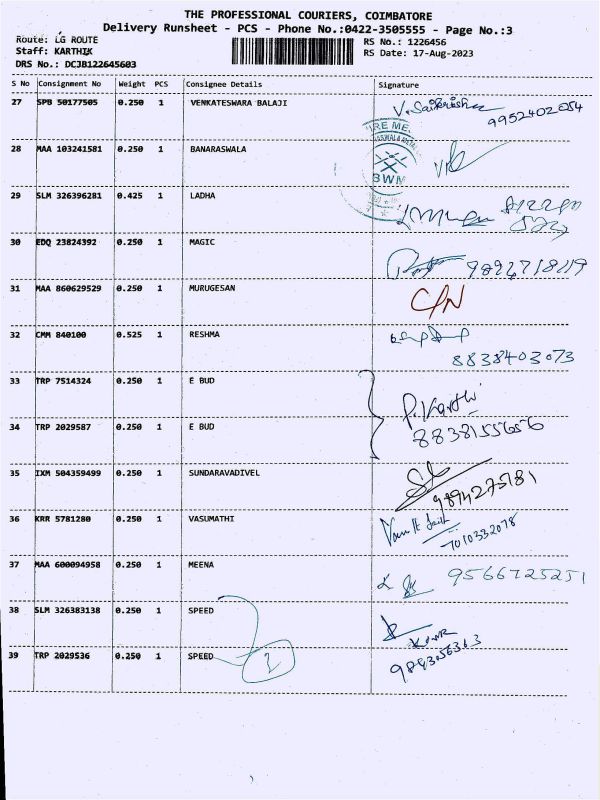 THE PROFESSIONAL COURIERS, COIMBATORE
Delivery Runsheet - PCS - Phone No.:0422-3505555 - Page No.:3
Route: LG ROUTE RS No.: 1226456
Staff: KARTHIK RS Date: 17-Aug-2023
DRS No.: DCJB122645603
S No Consignment No Weight PCS Consignee Details Signature
27 SPB 50177505 0.250 1 VENKATESWARA BALAJI
9952402054
28 MAA 103241581 0.250 1 BANARASWALA
BWM
29 SLM 326396281 0.425 1 LADHA
30 EDQ 23824392 0.250 1 MAGIC
31 MAA 860629529 0.250 1 MURUGESAN
32 CMM 840100 0.525 1 RESHMA
8838403073
33 TRP 7514324 0.250 1 E BUD
P. Karthi
34 TRP 2029587 0.250 1 E BUD
8838155656
35 IXM 504359499 0.250 1 SUNDARAVADIVEL
9894275181
36 KRR 5781280 0.250 1 VASUMATHI
7010332078
37 MAA 600094958 0.250 1 MEENA
9566725251
38 SLM 326383138 0.250 1 SPEED
39 TRP 2029536 0.250 1 SPEED 2